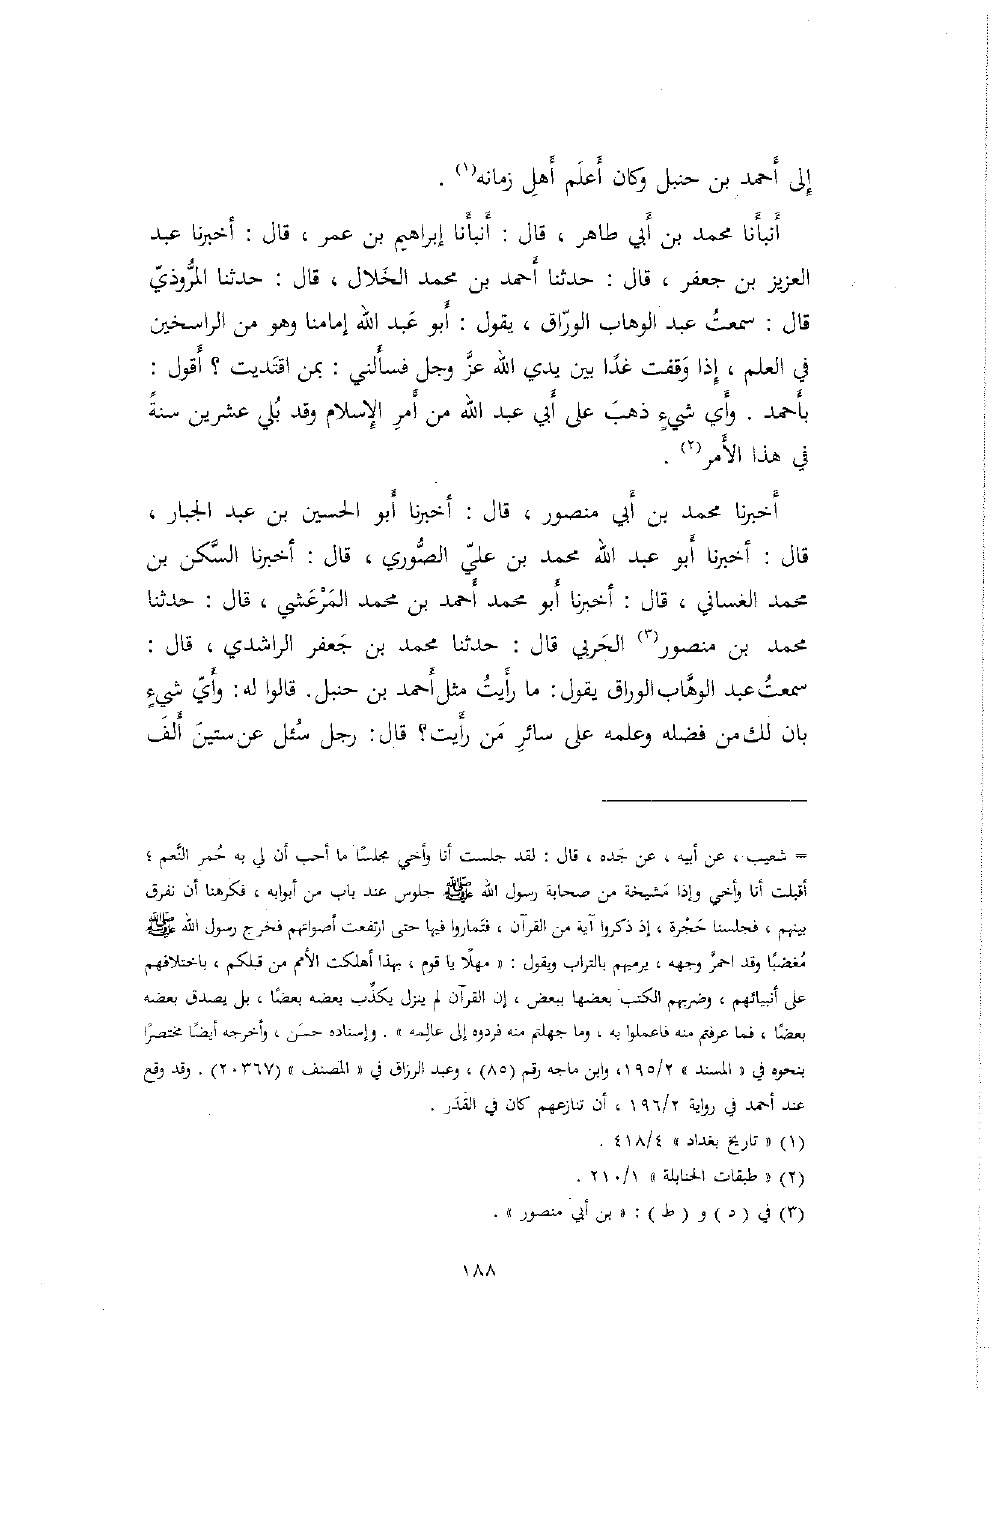 إلى أَحمد بن حنبل وكان أَعلَم أَهلِ زمانه(١) .
أَنبأَنا محمد بن أَبي طاهر ، قال : أَنبأَنا إبراهيم بن عمر ، قال : أخبرنا عبد
العزيز بن جعفر ، قال : حدثنا أَحمد بن محمد الخَلال ، قال : حدثنا المرُّوذيّ
قال : سمعتُ عبد الوهاب الورّاق ، يقول : أَبو عَبد الله إمامنا وهو من الراسخين
في العلم ، إِذا وَقفت غدًا بين يدي الله عزَّ وجل فسأَلني : بمن اقتَديت ؟ أَقول :
بأَحمد . وأَي شيءٍ ذهبَ على أَبي عبد الله من أَمرِ الإسلام وقد بُلي عشرين سنةً
في هذا الأَمر(٢) .
أَخبرنا محمد بن أَبي منصور ، قال : أخبرنا أَبو الحسين بن عبد الجبار ،
قال : أخبرنا أَبو عبد الله محمد بن عليّ الصُّوري ، قال : أخبرنا السَّكن بن
محمد الغساني ، قال : أخبرنا أَبو محمد أَحمد بن محمد المَرْعَشي ، قال : حدثنا
محمد بن منصور(٣) الحَربي قال : حدثنا محمد بن جَعفر الراشدي ، قال :
سمعتُ عبد الوهَّاب الوراق يقول : ما رأَيتُ مثل أَحمد بن حنبل. قالوا له : وأَيّ شيءٍ
بان لك من فضله وعلمه على سائرِ مَن رأَيت؟ قال : رجل سُئل عن ستينَ أَلفَ
= شعيب ، عن أبيه ، عن جَده ، قال : لقد جلست أنا وأخي مجلسًا ما أحب أن لي به حُمر النَّعم ؛
أقبلت أنا وأخي وإذا مَشيخة من صحابة رسول الله ﷺ جلوس عند باب من أبوابه ، فكرهنا أن نفرق
بينهم ، فجلسنا حَجْرة ، إذ ذكروا آية من القرآن ، فتماروا فيها حتى ارتفعت أصواتهم فخرج رسول الله ﷺ
مُغضبًا وقد احمرَّ وجهه ، يرميهم بالتراب ويقول : « مهلًا يا قوم ، بهذا أهلكت الأمم من قبلكم ، باختلافهم
على أنبيائهم ، وضربهم الكتب بعضها ببعض ، إن القرآن لم ينزل يكذِّب بعضه بعضًا ، بل يصدق بعضه
بعضًا ، فما عرفتم منه فاعملوا به ، وما جهلتم منه فردوه إلى عالِمه » . وإسناده حسَن ، وأخرجه أيضًا مختصرًا
بنحوه في « المسند » ١٩٥/٢، وابن ماجه رقم (٨٥) ، وعبد الرزاق في « المصنف » (٢٠٣٦٧) . وقد وقع
عند أحمد في رواية ١٩٦/٢ ، أن تنازعهم كان في القَدَر .
(١) « تاريخ بغداد » ٤١٨/٤ .
(٢) « طبقات الحنابلة » ٢١٠/١ .
(٣) في ( د ) و ( ط ) : « بن أبي منصور » .
١٨٨